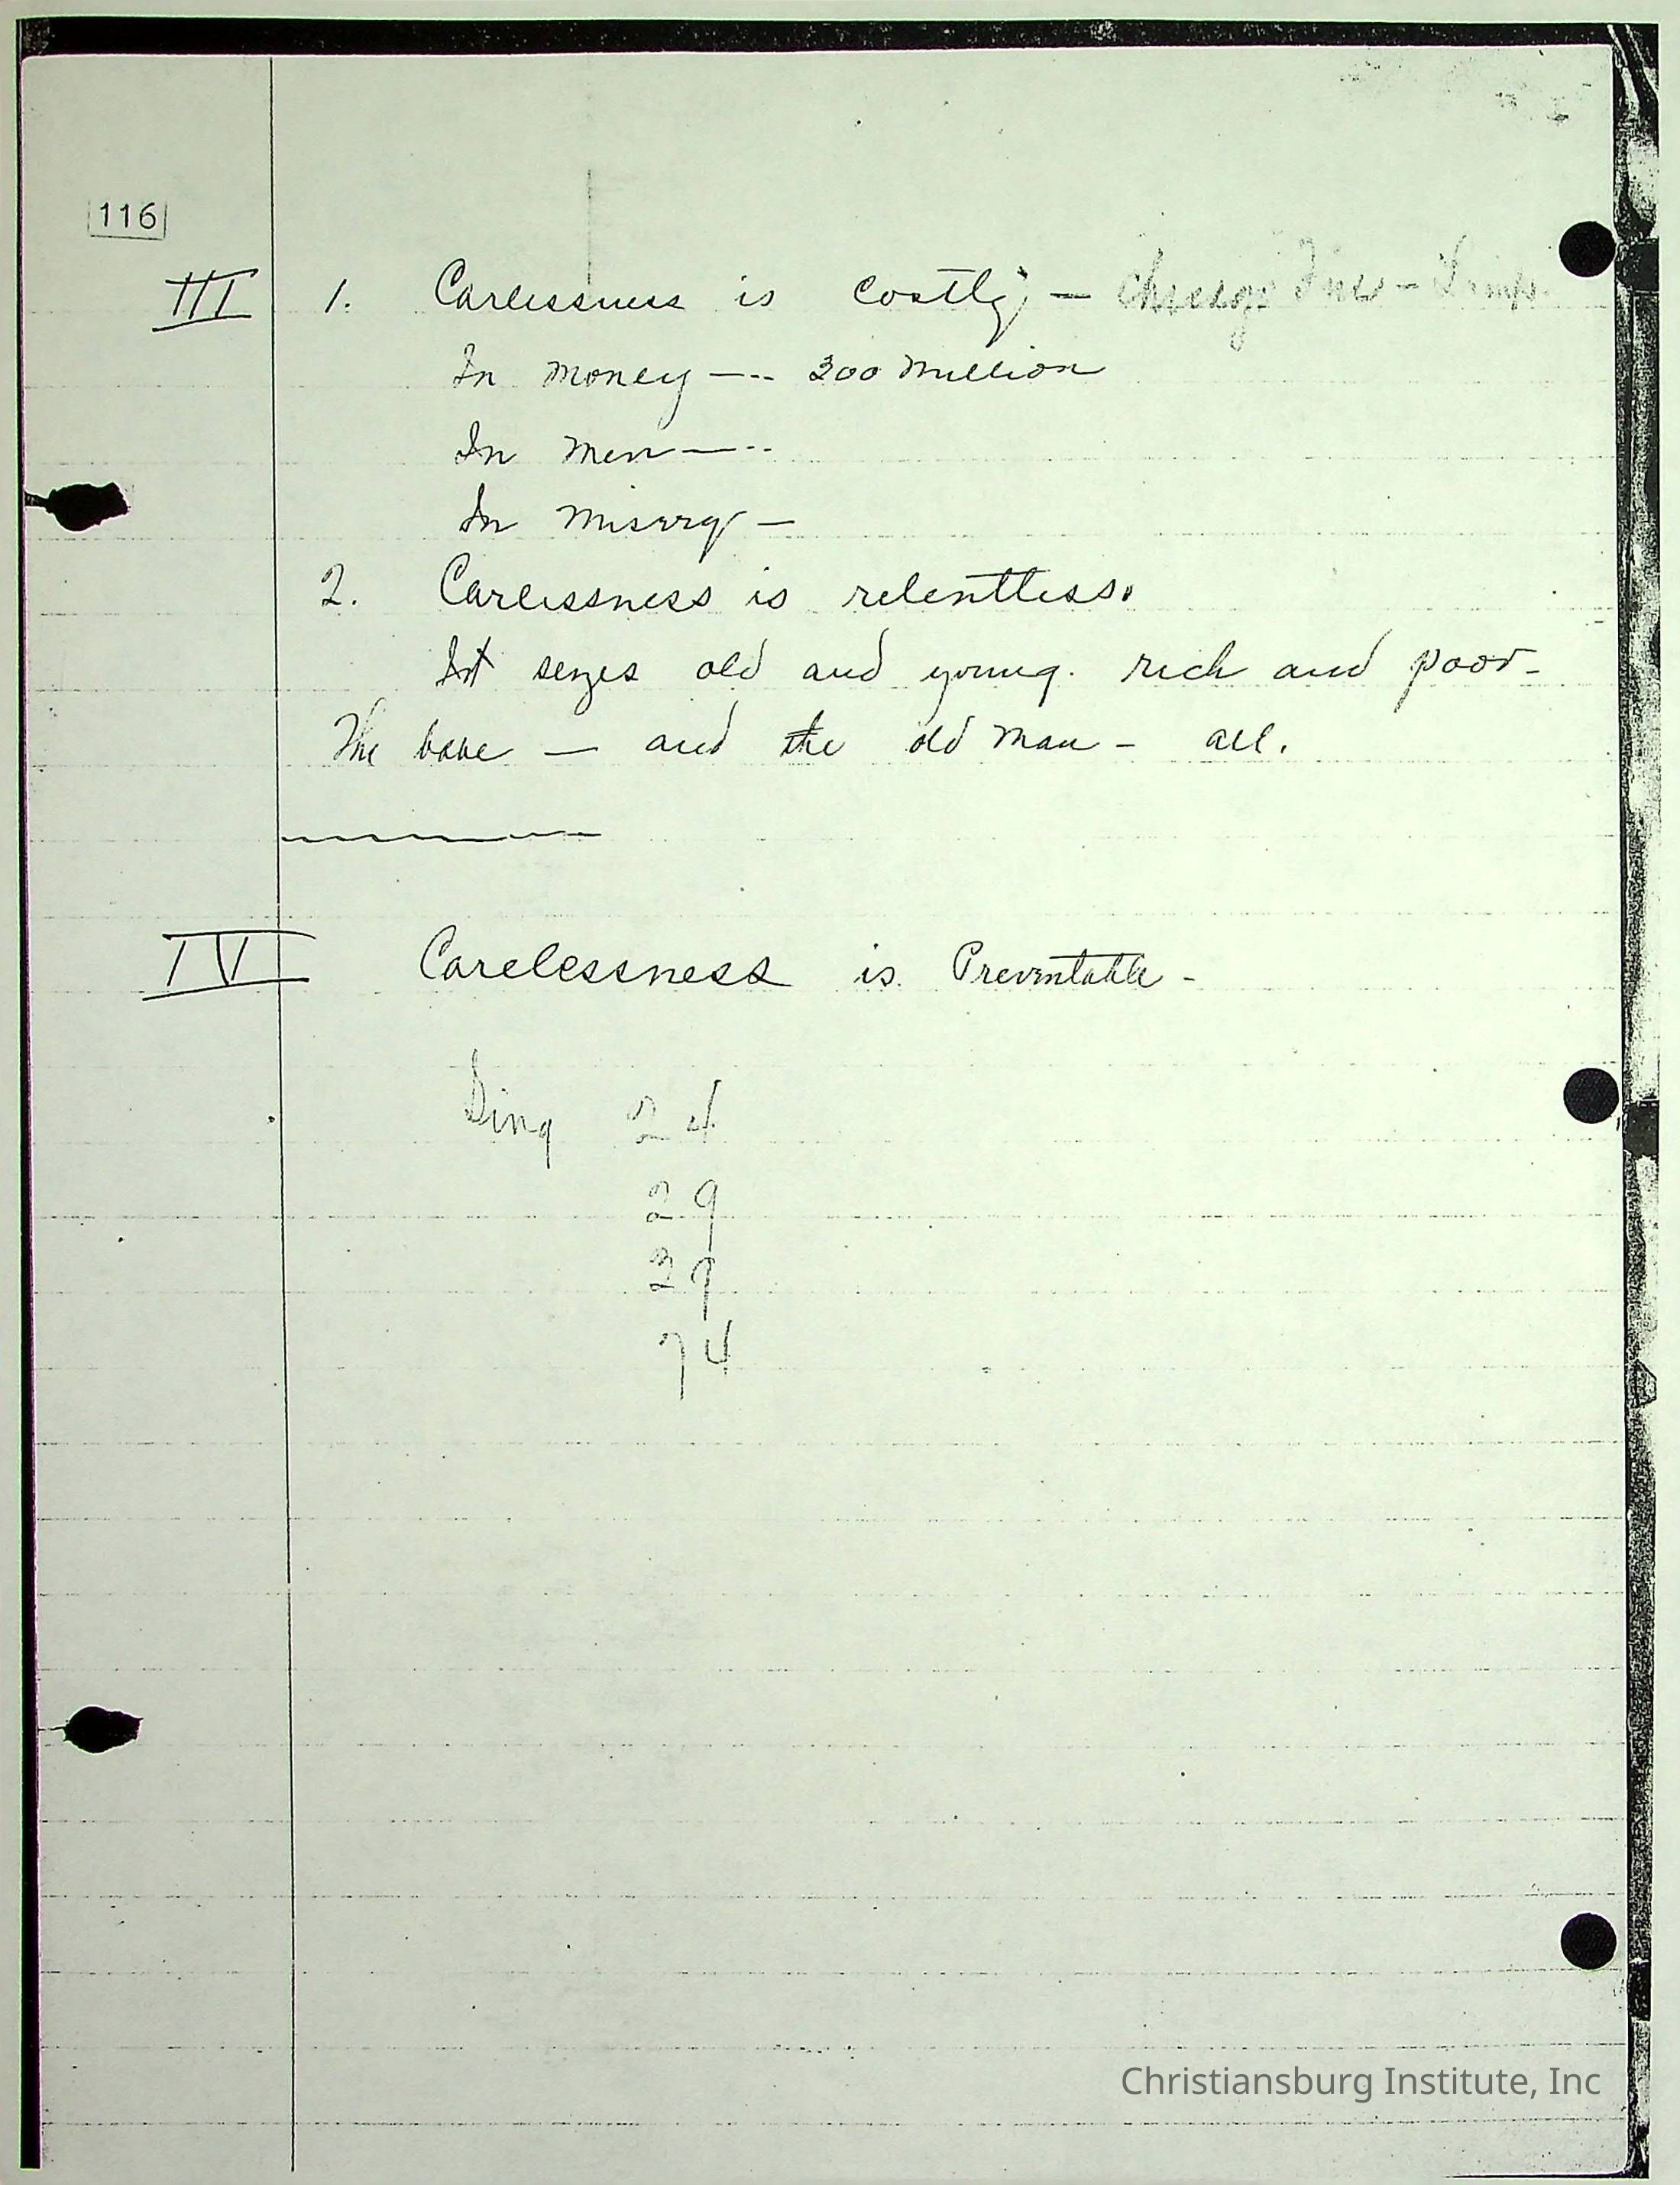 116
III 1. Carlessness is costly — Chicago Fire -
In money --- 300 million
In men ---
In misery —
2. Carlessness is relentless.
It sezes old and young. rich and poor-
The babe — and the old man - all.
IV Carelessness is Preventable -
Sing 24
29
39
74
Christiansburg Institute, Inc